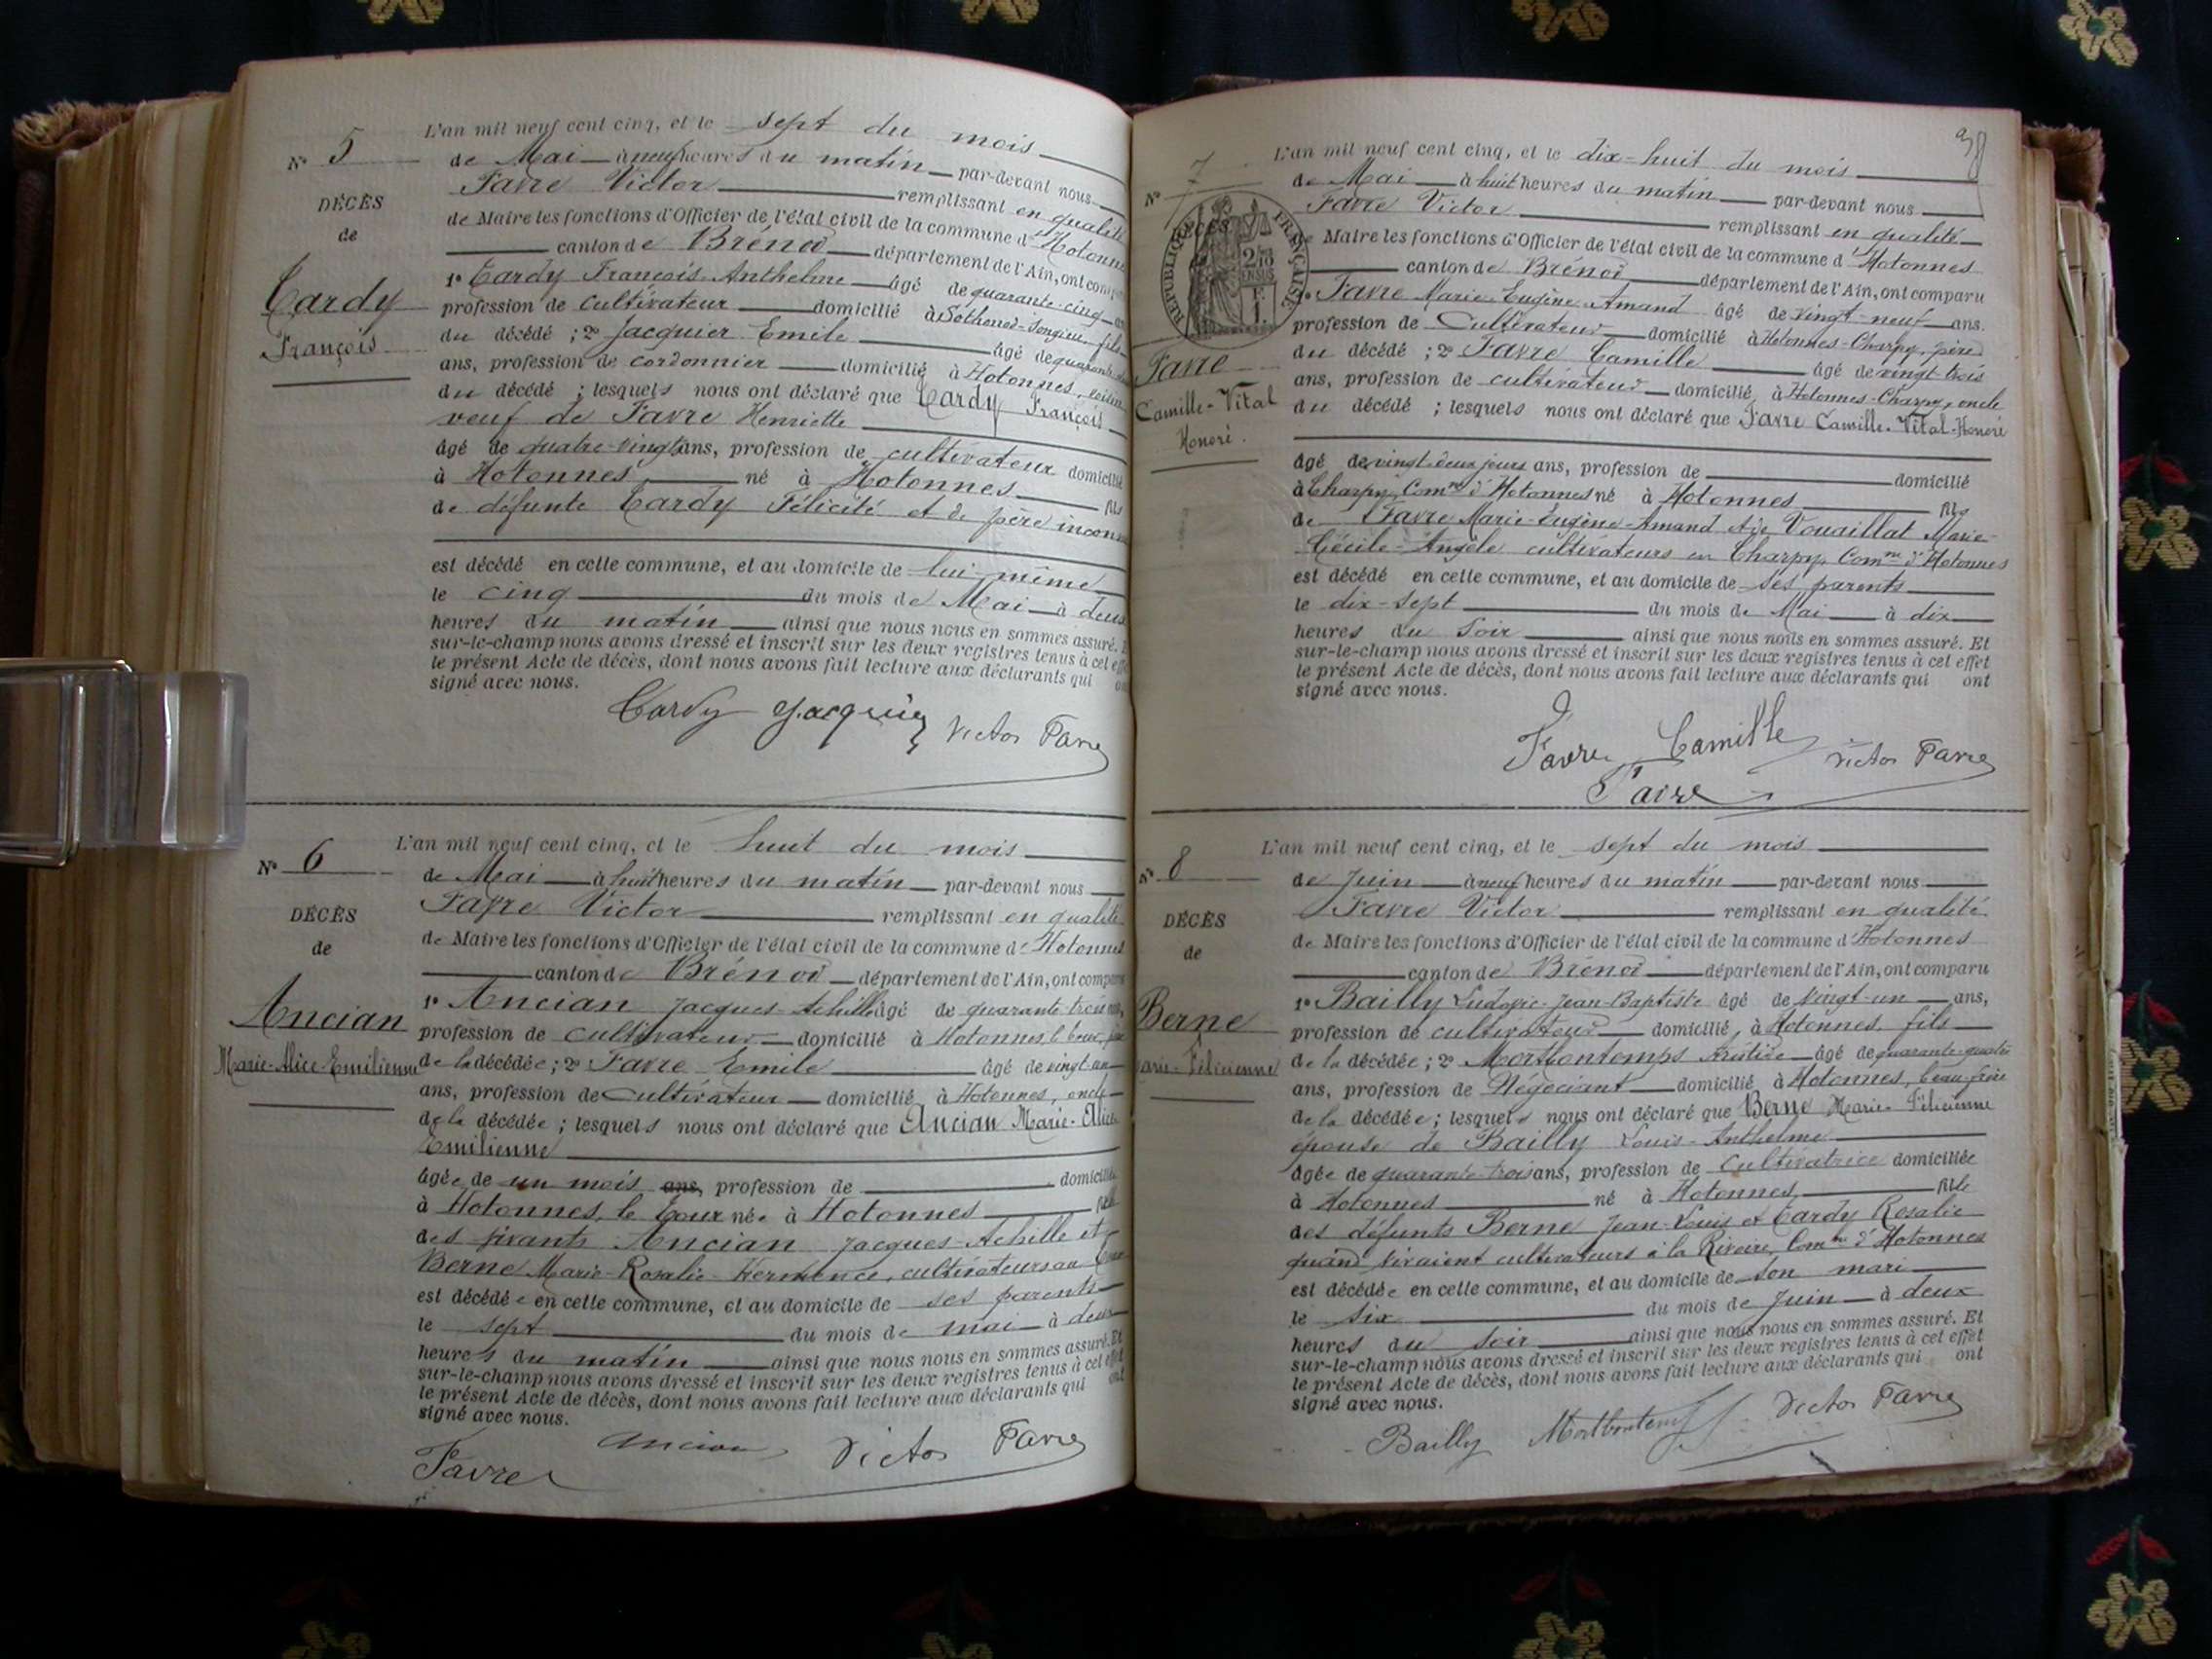 N° 5
DÉCÈS
de
Cardy
François
L'an mil neuf cent cinq, et le sept du mois
de Mai à neuf heures du matin par-devant nous
Favre Victor remplissant en qualité
de Maire les fonctions d'Officier de l'état civil de la commune d'Hotonnes
canton de Brénod département de l'Ain, ont comparu
1° Cardy François Anthelme âgé de quarante-cinq
profession de cultivateur domicilié à Sothonod-Songieu, fils
du décédé ; 2° Jacquier Emile âgé de
ans, profession de cordonnier domicilié à Hotonnes, voisin
du décédé ; lesquels nous ont déclaré que Cardy François
veuf de Favre Henriette
âgé de quatre-vingts ans, profession de cultivateur domicilié
à Hotonnes né à Hotonnes fils
de défunte Cardy Félicité et de père inconnu
est décédé en cette commune, et au domicile de lui-même
le cinq du mois de Mai à deux
heures du matin ainsi que nous nous en sommes assuré. E
sur-le-champ nous avons dressé et inscrit sur les deux registres tenus à cet effe
le présent Acte de décès, dont nous avons fait lecture aux déclarants qui on
signé avec nous.
Cardy Jacquier Victor Favre
N° 6
DÉCÈS
de
Ancian
Marie-Alice-Emilienne
L'an mil neuf cent cinq, et le huit du mois
de Mai à huit heures du matin par-devant nous
Favre Victor remplissant en qualité
de Maire les fonctions d'Officier de l'état civil de la commune d'Hotonnes
canton de Brénod département de l'Ain, ont comparu
1° Ancian Jacques-Achille âgé de quarante-trois ans,
profession de cultivateur domicilié à Hotonnes, père
de la décédée ; 2° Favre Emile âgé de vingt-un
ans, profession de Cultivateur domicilié à Hotonnes, oncle
de la décédée ; lesquels nous ont déclaré que Ancian Marie-Alice
Emilienne
âgée de un mois ans, profession de domiciliée
à Hotonnes, le née à Hotonnes fille
des vivants Ancian Jacques-Achille et
Berne Marie-Rosalie-Hermence, cultivateurs au
est décédée en cette commune, et au domicile de ses parents
le sept du mois de mai à deux
heures du matin ainsi que nous nous en sommes assuré. Et
sur-le-champ nous avons dressé et inscrit sur les deux registres tenus à cet effet
le présent Acte de décès, dont nous avons fait lecture aux déclarants qui ont
signé avec nous.
Favre Ancian Victor Favre
38
N° 7
DÉCÈS
RÉPUBLIQUE FRANÇAISE
Favre
Camille-Vital
Honoré.
L'an mil neuf cent cinq, et le dix-huit du mois
de Mai à huit heures du matin par-devant nous
Favre Victor remplissant en qualité
de Maire les fonctions d'Officier de l'état civil de la commune d'Hotonnes
canton de Brénod département de l'Ain, ont comparu
1° Favre Marie-Eugène-Amand âgé de vingt-neuf ans.
profession de Cultivateur domicilié à Hotonnes-Charpy, père
du décédé ; 2° Favre Camille âgé de vingt-trois
ans, profession de cultivateur domicilié, à Hotonnes-Charpy, oncle
du décédé ; lesquels nous ont déclaré que Favre Camille-Vital-Honoré
âgé de vingt-deux jours ans, profession de domicilié
à Charpy, Comne d'Hotonnes né à Hotonnes fils
de Favre Marie-Eugène-Amand et de Vouaillat Marie-
Cécile-Angèle cultivateurs en Charpy, Comne d'Hotonnes
est décédé en cette commune, et au domicile de ses parents
le dix-sept du mois de Mai à dix
heures du soir ainsi que nous nous en sommes assuré. Et
sur-le-champ nous avons dressé et inscrit sur les deux registres tenus à cet effet
le présent Acte de décès, dont nous avons fait lecture aux déclarants qui ont
signé avec nous.
Favre Camille Victor Favre
Favre
N° 8
DÉCÈS
de
Berne
Marie-Félicienne
L'an mil neuf cent cinq, et le sept du mois
de Juin à neuf heures du matin par-devant nous
Favre Victor remplissant en qualité
de Maire les fonctions d'Officier de l'état civil de la commune d'Hotonnes
canton de Brénod département de l'Ain, ont comparu
1° Bailly Ludovic-Jean-Baptiste âgé de vingt-un ans,
profession de cultivateur domicilié, à Hotonnes, fils
de la décédée ; 2° Mortbontemps Aristide âgé de quarante-quatre
ans, profession de Négociant domicilié, à Hotonnes, beau-frère
de la décédée ; lesquels nous ont déclaré que Berne Marie-Félicienne
épouse de Bailly Louis-Anthelme
âgée de quarante-trois ans, profession de cultivatrice domiciliée
à Hotonnes né à Hotonnes, fille
des défunts Berne Jean-Louis et Cardy Rosalie
quand vivaient cultivateurs à la Rivoire, Comne d'Hotonnes
est décédée en cette commune, et au domicile de son mari
le six du mois de Juin à deux
heures du soir ainsi que nous nous en sommes assuré. Et
sur-le-champ nous avons dressé et inscrit sur les deux registres tenus à cet effet
le présent Acte de décès, dont nous avons fait lecture aux déclarants qui ont
signé avec nous.
Bailly Mortbontemps Victor Favre